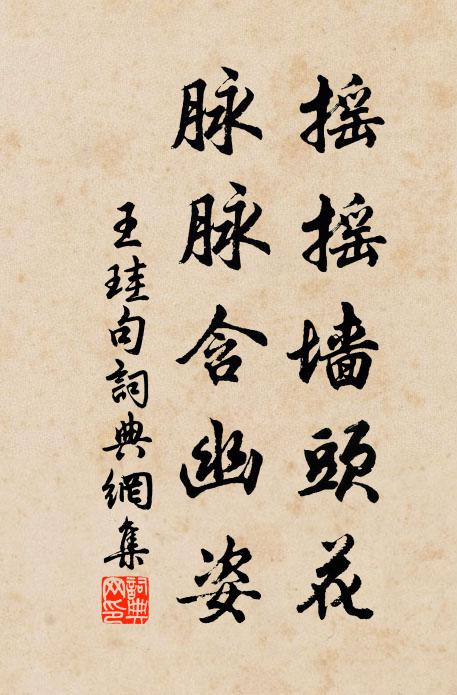 摇摇墙頭花
脉脉含幽姿
王珪句詞典網集
詞典网印